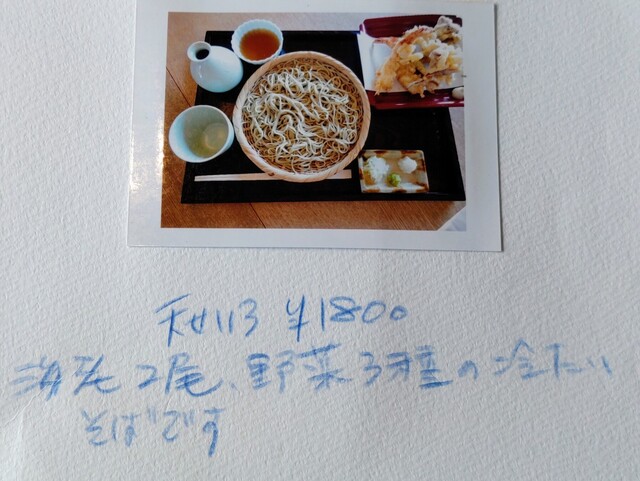 天せいろ ¥1800
海老2尾、野菜3種の冷たい
そばです